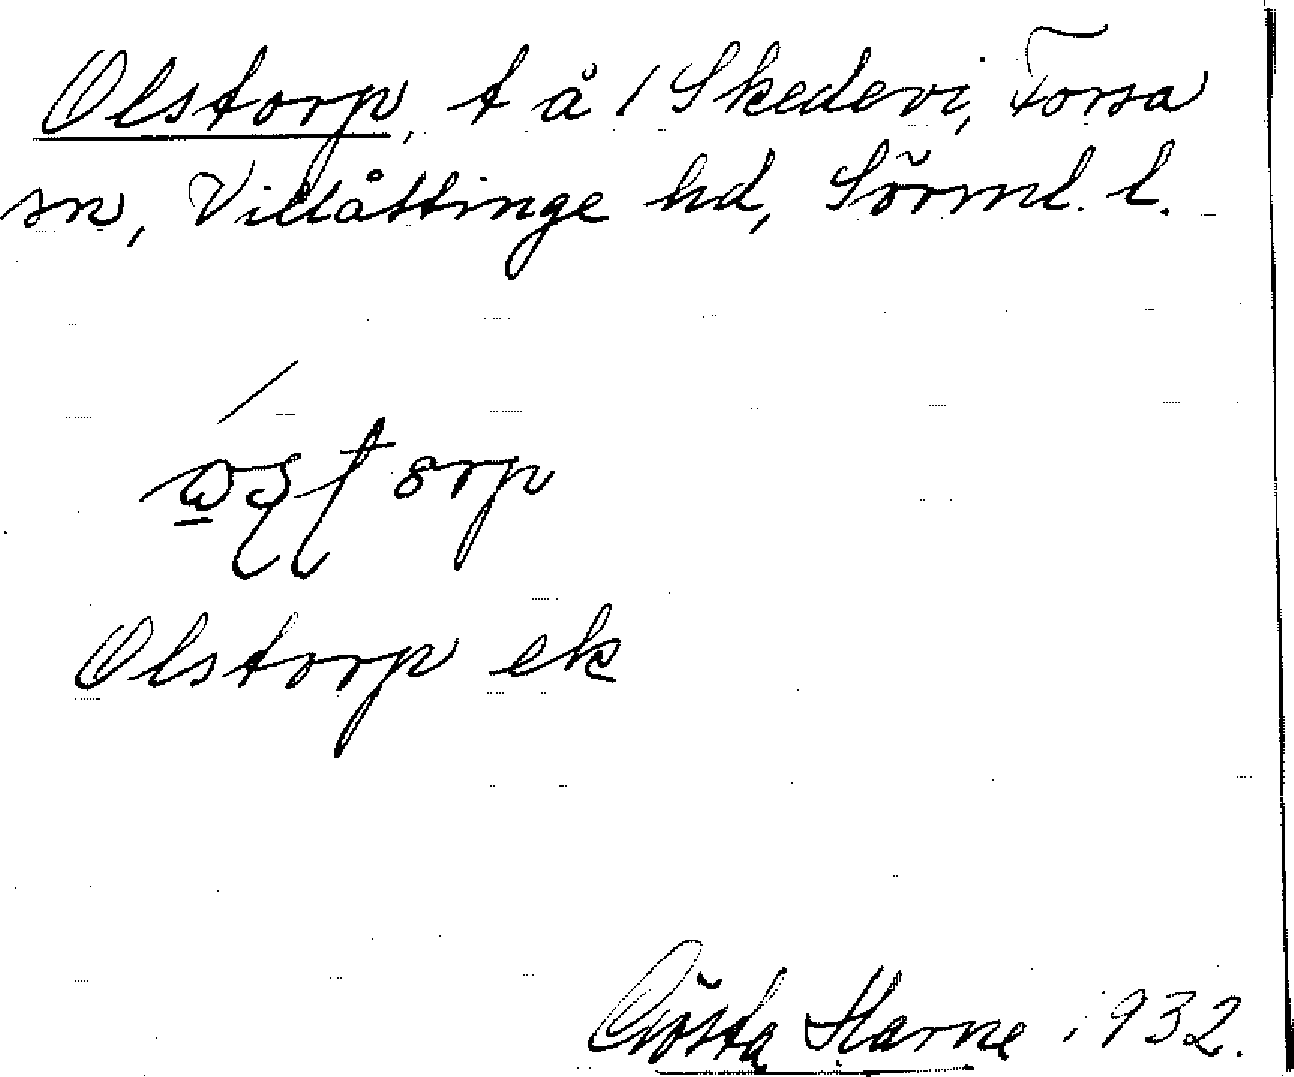 Olstorp, t å / Skedevi, Forsa
sn, Villåttinge hd, Sörml. l.
Olstorp ek
Gösta Harne 1932.